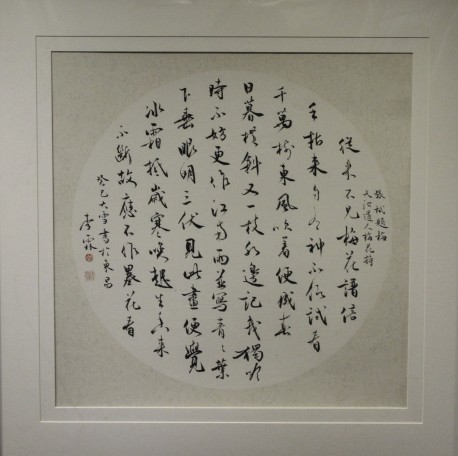 張栻題梅
道人梅花詩
從來不見梅花譜信
手拈來自有神不信試看
千萬樹東風吹着便成春
日暮橫斜又一枝水邊記我獨吟
時不妨更作江南雨並寫青々葉
下垂眼明三伏見此畫便覺
冰霜抵歲寒喚起生香來
不斷故應不作墨花看
癸巳大雪書於東昌
李霖